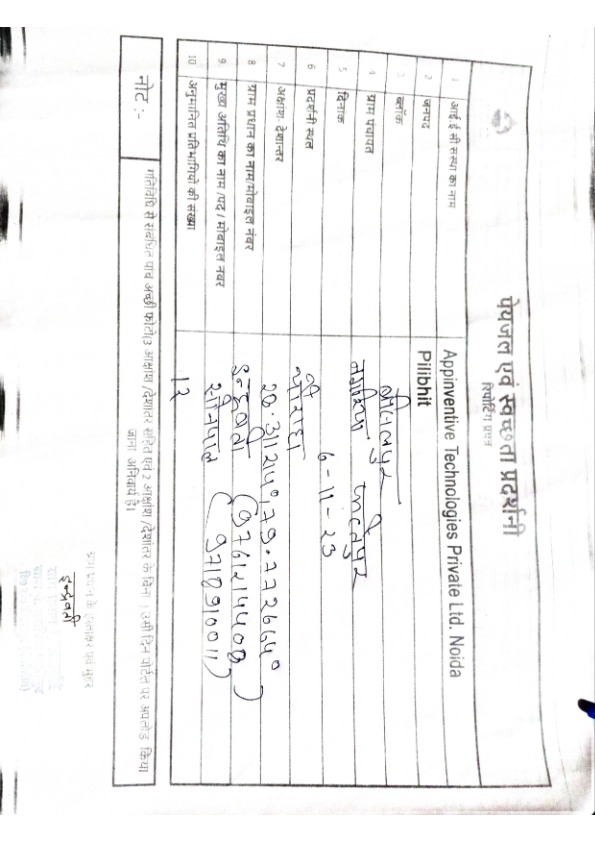 पेयजल एवं स्वच्छता प्रदर्शनी
रिपोर्टिंग प्रपत्र
1 आई ई सी संस्था का नाम Appinventive Technologies Private Ltd. Noida
2 जनपद Pilibhit
3 ब्लॉक बीसलपुर
4 ग्राम पंचायत फतेपुर
5 दिनांक 6-11-23
6 प्रदर्शनी स्थल चौराहा
7 अक्षांश: देशान्तर
8 ग्राम प्रधान का नाम/मोबाइल नंबर इन्द्रवती
9 मुख्य अतिथि का नाम /पद / मोबाइल नंबर सोनपाल
10 अनुमानित प्रतिभागियों की संख्या 12
नोट :- गतिविधि से संबंधित पांच अच्छी फोटो(3 आक्षांश /देशांतर सहित एवं 2 आक्षांश /देशांतर के बिना ) उसी दिन पोर्टल पर अपलोड किया
जाना अनिवार्य है।
इन्द्रवती
ग्राम प्रधान के हस्ताक्षर एवं मुहर